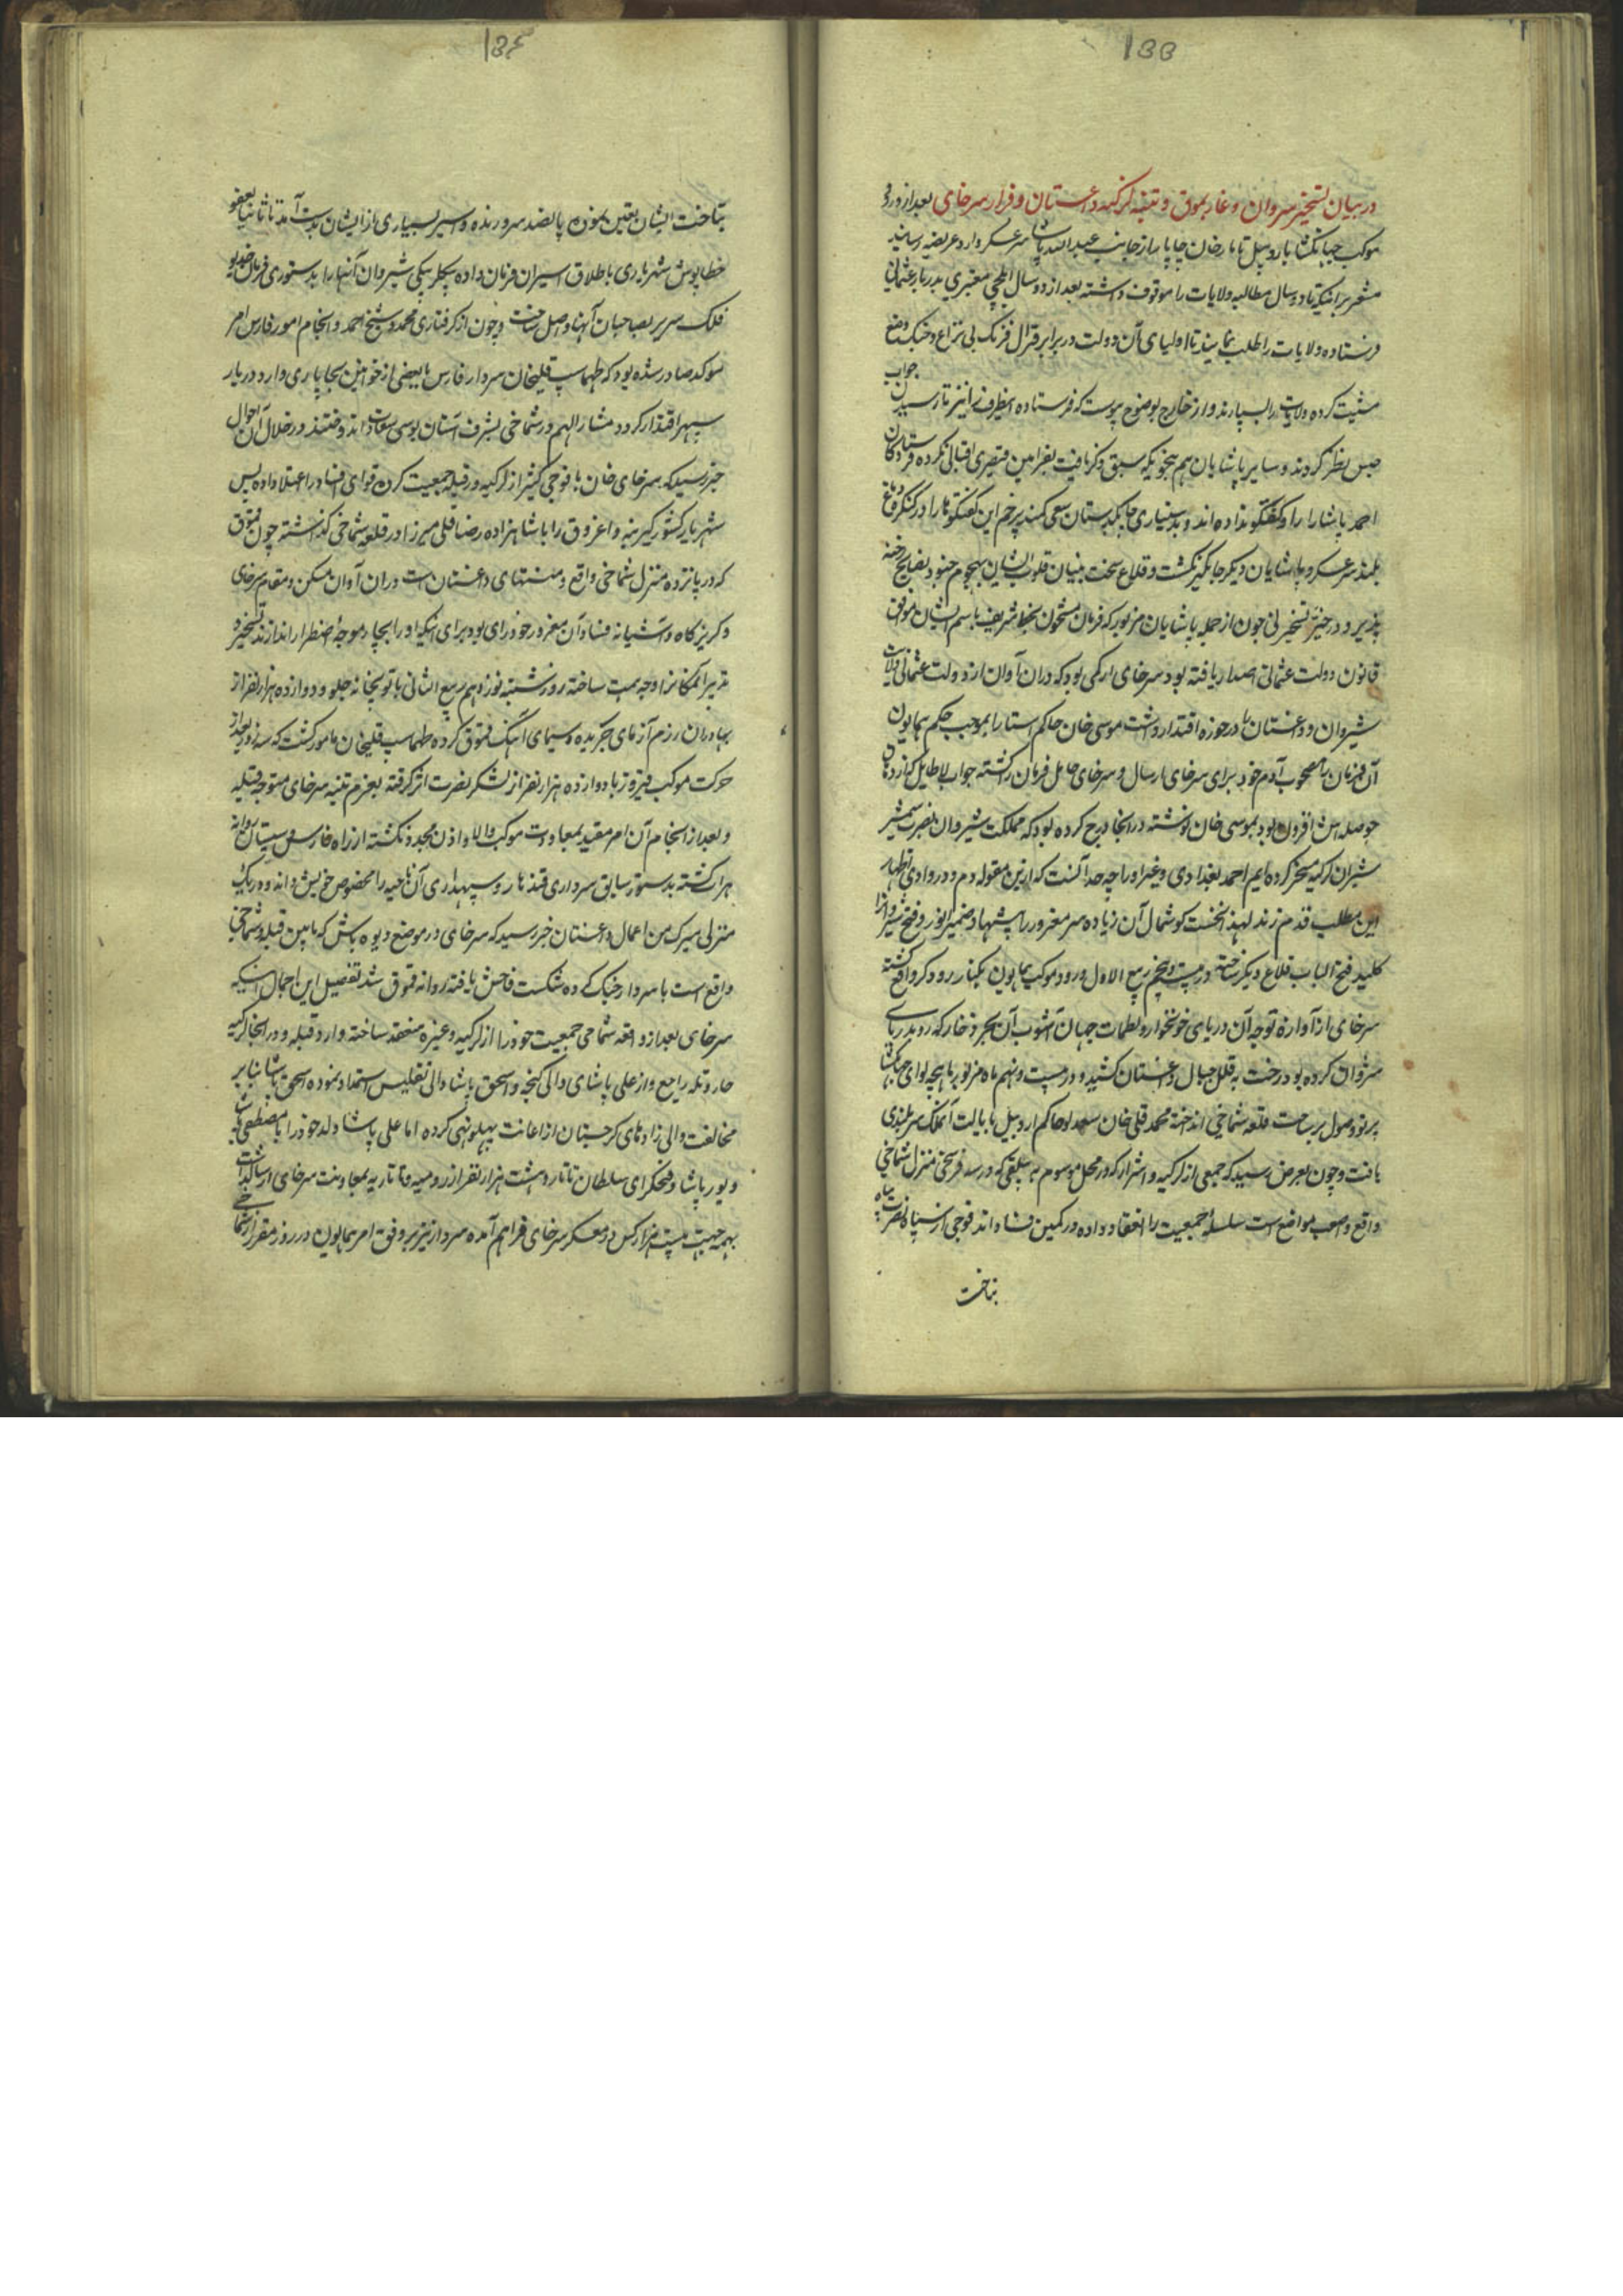 ۱۵۵
در بیان تسخیر شروان و غازیقموق و تنبیه لزکیه داغستان و فرار سرخای بعد از ورود
موکب جهانکشا باردبیل تاتار خان چاپار از جانب عبدالله پاشا سرعسکر وارد و عریضه رسانید
مشعر بر اینکه تا دو سال مطالبه ولایات را موقوف داشته بعد از دو سال ایلچی معتبری بدربار عثمانی
فرستاده ولایات را طلب نمایند تا اولیای آن دولت در برابر قرال فرنک بی نزاع و جنک وضع
جواب
مشیت کرده ولایات را بسپارند و از خارج بوضوح پیوست که فرستاده اینطرف را نیز تا رسیدن
حبس نظر کردند و سایر پاشایان هم بنحویکه سبق ذکر یافت بفرامین قیصری اقبالی نکرده فرستادگان
احمد پاشا را راه کفتکو نداده اند و بدستیاری جابکدستان سعی کمند پرخم این کفتکوها را در کنکره دماغ
بلند سرعسکر و پاشایان دیکر جایکیر نکشت و قلاع سخت بنیان قلوب ایشان بهجوم جنود نصایح رخنه
پذیر و در حیز تسخیر نی چون از جمله پاشایان مزبور که فرمان مشحون بخط شریف باسم ایشان موافق
قانون دولت عثمانی اصدار یافته بود سرخای لزکی بود که در ان آوان از دولت عثمانی ولایت
شیروان و داغستان را در حوزه اقتدار داشت موسی خان حاکم استارا بموجب حکم همایون
آن فرمان را مصحوب آدم خود برای سرخای ارسال و سرخای حامل فرمان را کشته جواب لاطایل که از دهان
حوصله اش افزون بود بموسی خان نوشته در انجا درج کرده بود که مملکت شیروان بضرب شمشیر
شیران لزکیه مسخر کرده ایم احمد بغدادی و غیر او را چه حد آنست که ازین مقوله دم و در وادی اظهار
این مطلب قدم زند لهذا نخست کوشمال آن زیاده سر مغرور را پیشنهاد ضمیر انور و فتح شیروانرا
کلید فتح الباب قلاع دیکر ساخته در بیست و پنجم ربیع الاول ورود موکب همایون بکنار رود کر واقع کشته
سرخای از آوازه توجه آن دریای خونخوار و لطمات جهان آشوب آن بحر ذخار که رو بدریای
شروان کرده بود رخت به قلل جبال داغستان کشید و در بیست و نهم ماه مزبور ماهچه لوای جهانکشا
پرتو وصول بر ساحت قلعه شماخی انداخته محمد قلی خان سعدلو حاکم اردبیل بایالت آنملک سربلندی
یافت و چون بعرض رسید که جمعی از لزکیه و اشرار که در محل موسوم به که در سه فرسخی منزل شماخی
واقع و اصعب مواضع است سلسله جمعیت را انعقاد داده در کمین فساد اند فوجی از سپاه نصرت پناه
بتاخت
۱۵۶
بتاخت ایشان تعیین نموده پانصد سر و زنده و اسیر بسیاری از ایشان بدست آمد تا ثانیا بعفو
خطاپوش شهریاری باطلاق اسیران فرمان داده بیکلربیکی شیروان آنها را بدستوری فرمان خدیو
فلک سریر بصاحبان آنها واصل ساخت و چون از کرفتاری محمد و شیخ احمد و انجام امور فارس امر
موکد صادر شده بود که طهماسب قلیخان سردار فارس با بعضی از خوانین بچاپاری وارد دربار
سپهر اقتدار کردد مشار الیهم در شماخی بشرف آستان بوسی سعادت اندوختند در خلال آن احوال
خبر رسید که سرخای خان با فوجی کثیر از لزکیه در قبله جمعیت کرده قوای فساد را اعتلا داده پس
شهریار کشورکیر بنه و اغروق را با شاهزاده رضا قلی میرزا در قلعه شماخی کذاشته چون قموق
که در پانزده منزل شماخی واقع و منتهای داغستان است در ان آوان مسکن و مقام سرخای
و کریزکاه و آشیانه فساد آن مغرور خود رای بود برای اینکه او را بچار موجه اضطرار اندازند تسخیر و
تدبیر آنمکانرا وجه همت ساخته روز شنبه نوزدهم ربیع الثانی با توپخانه جلو و دوازده هزار نفر از
بهادران رزم آزمای جریده و سیمای آهنک قموق کرده طهماسب قلیخان مامور کشت که سه روز بعد از
حرکت موکب فیروز با دوازده هزار نفر از لشکر نصرت اثر کرفته بعزم تنبیه سرخای متوجه قبله
و بعد از انجام آن امر مقید بمعاودت موکب والا و اذن مجدد نکشته از راه فارس و سیستان روانه
هرات کشته بدستور سابق سرداری قندهار و سپهداری آن ناحیه را مخصوص خویش داند و در یک
منزلی من اعمال داغستان خبر رسید که سرخای در موضع دیوه باتن که مابین قبله و شماخی
واقع است با سردار جنک کرده شکست فاحش یافته روانه قموق شد تفصیل این اجمال اینکه
سرخای بعد از واقعه شماخی جمعیت خود را از لزکیه و غیره منعقد ساخته وارد قبله و در انجا لزکیه
جار و تله را جمع و از علی پاشای والی کنجه و اسحق پاشا والی تفلیس استمداد نموده اسحق پاشا بنابر
مخالفت والی زاده های کرجستان از اعانت پهلو تهی کرده اما علی پاشا ولد خود را با مصطفی پاشا
و پور پاشا و فتحکرای سلطان تاتار و هشت هزار نفر از رومیه و تاتاریه بمعاونت سرخای ارسال داشت
بهمه جهت بیست هزار کس در معسکر سرخای فراهم آمده سردار نیز بر وفق امر همایون در روز مقرر از شماخی